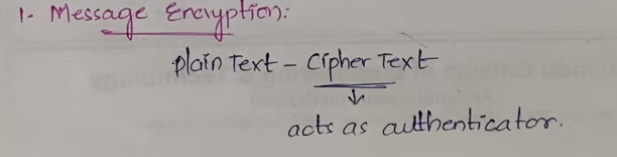 1. Message Encryption:
plain Text - Cipher Text
↓
acts as authenticator.